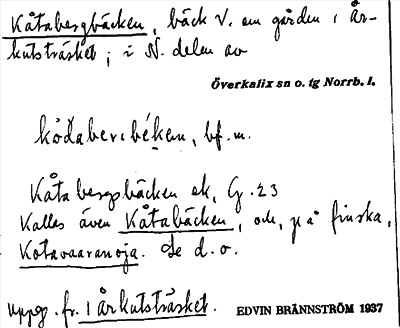 Kåtabergbäcken, bäck V. om gården i År-
kutsträsket; i N. delen av
Överkalix sn o. tg Norrb. l.
bf. m.
Kåtabergsbäcken ek, G. 23
Kallas även Kåtabäcken, och, på finska,
Kotavaaranoja. Se d. o.
uppg. fr. i Årkutsträsket. EDVIN BRÄNNSTRÖM 1937